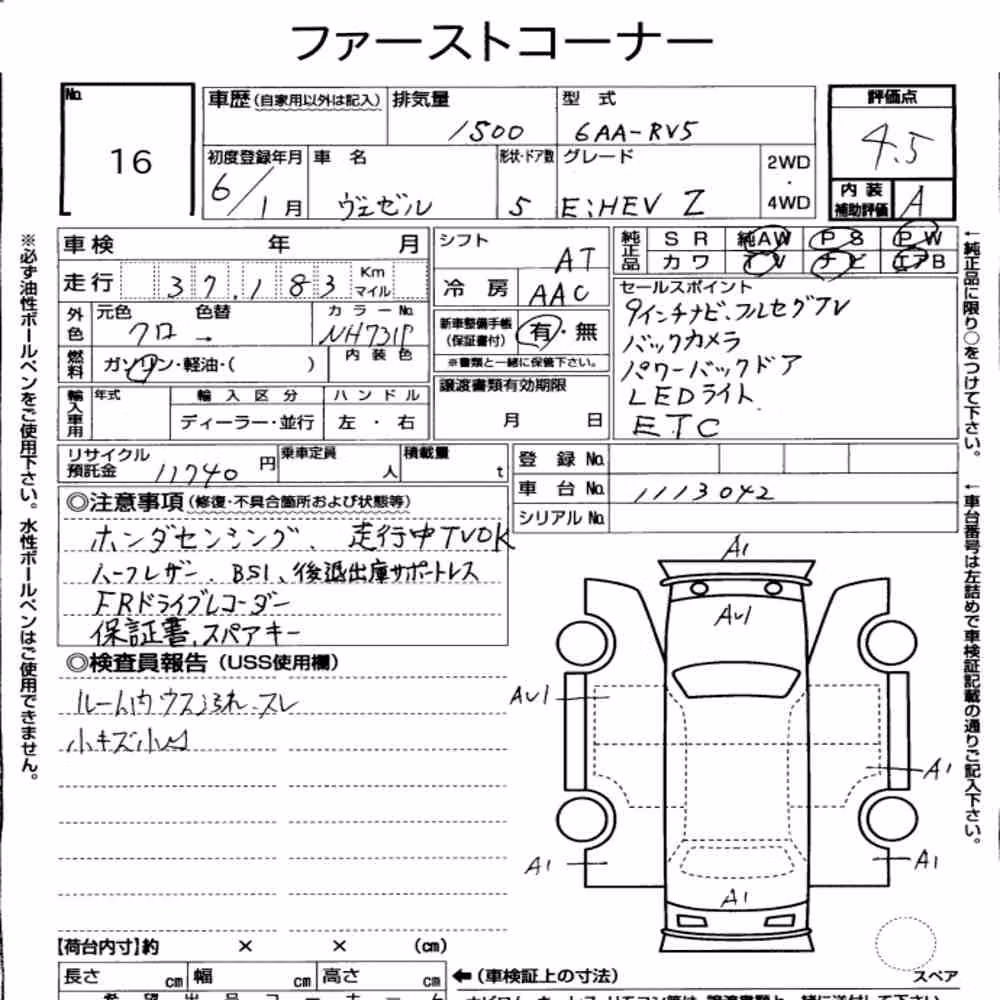 ファーストコーナー
No. 16
車歴 (自家用以外は記入) 排気量 1500 型式 6AA-RV5
評価点 4.5
初度登録年月 6/1月 車名 ヴェゼル 形状・ドア数 5 グレード E:HEV Z 2WD・4WD
内装補助評価 A
車検 年 月
シフト AT
純正品 SR 純AW PS PW
カワ TV ナビ エアB
走行 37,183 Km マイル
冷房 AAC
外色 元色 クロ 色替 → カラーNo. NH731P
新車整備手帳(保証書付) 有・無
※書類と一緒に保管下さい。
燃料 ガソリン・軽油・( ) 内装色
譲渡書類有効期限 月 日
セールスポイント
9インチナビ.フルセグTV
バックカメラ
パワーバックドア
LEDライト
ETC
輸入車用 年式 輸入区分 ハンドル
ディーラー・並行 左・右
リサイクル預託金 11740円 乗車定員 人 積載量 t
登録No.
車台No. 1113042
シリアルNo.
◎注意事項(修復・不具合箇所および状態等)
ホンダセンシング、走行中TVOK
ハーフレザー、BSI、後退出庫サポートレス
FRドライブレコーダー
保証書、スペアキー
◎検査員報告(USS使用欄)
ルーム内ウスヨゴれ.スレ
小キズ小凹
A1
AU1
AU1
A1
A1
A1
A1
【荷台内寸】約 × × (cm)
長さ cm 幅 cm 高さ cm ←(車検証上の寸法)
スペア
※必ず油性ボールペンをご使用下さい。水性ボールペンはご使用できません。
←純正品に限り○をつけて下さい。
←車台番号は左詰めで車検証記載の通りご記入下さい。